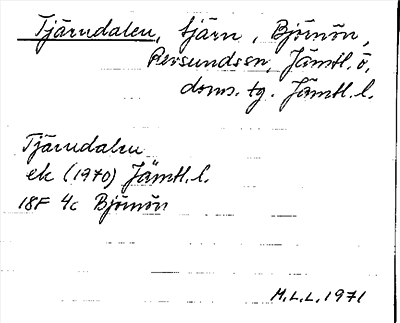 Tjärndalen, tjärn, Björnön,
Revsunds sn, Jämtl. ö.
doms. tg. Jämtl. l.
Tjärndalen
ek (1970) Jämtl. l.
18F 4c Björnön
M.L.L. 1971